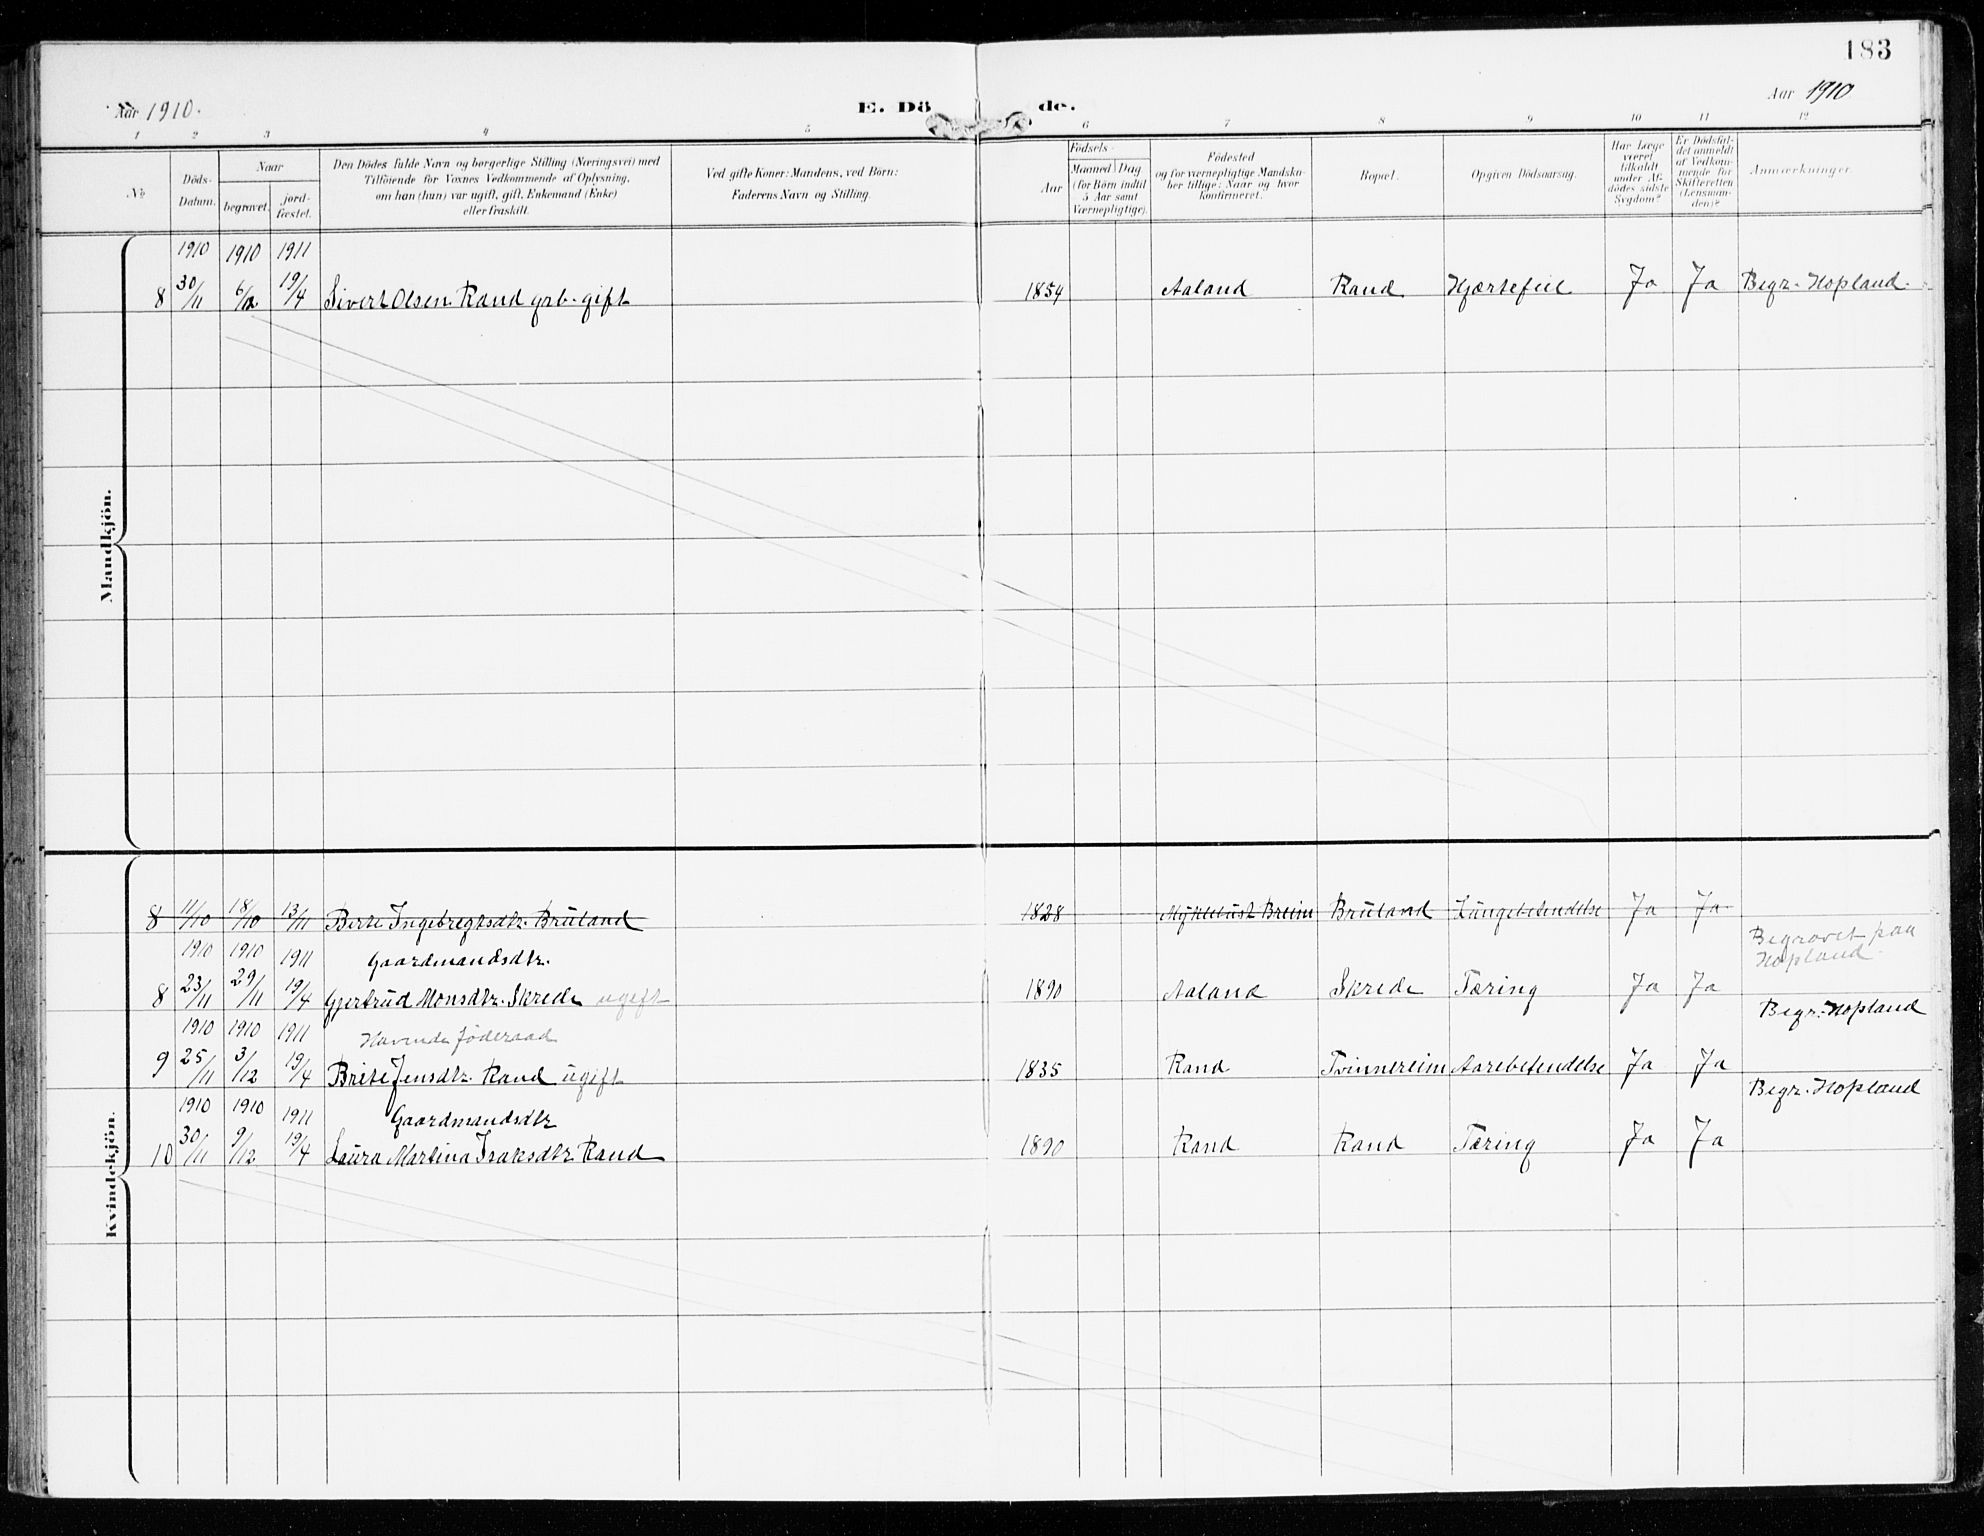 183
Aar 1910.
E. Dö
de.
Aar 1910
1 2 3 4 5 6 7 8 9 10 11 12
No
Döds-Datum.
Naar
begravet.
jord-fæstet.
Den Dödes fulde Navn og borgerlige Stilling (Næringsvei) med
Tilföiende for Voxnes Vedkommende af Oplysning,
om han (hun) var ugift, gift, Enkemand (Enke)
eller fraskilt.
Ved gifte Koner: Mandens, ved Börn:
Faderens Navn og Stilling.
Födsels-
Aar
Maaned Dag
(for Börn indtil
5 Aar samt
Værnepligtige).
Födested
og for værnepligtige Mandska-
ber tillige: Naar og hvor
konfirmeret.
Bopæl.
Opgiven Dödsaarsag.
Har Læge
været
tilkaldt
under Af-
dödes sidste
Sygdom?
Er Dödsfal-
det anmeldt
af Vedkom-
mende for
Skifteretten
(Lensman-
den)?
Anmærkninger.
Mandkjön.
1910 1910 1911
8 30/11 6/12 19/4 Sivert Olsen Rand grb. gift 1854 Aaland Rand Hjertefeil Ja Ja Begr. Hopland.
Kvindekjön.
8 11/10 18/10 13/11 Berte Ingebregtsdtr. Bruland 1828 Myklebust Breim Bruland Lungebetendelse Ja Ja
1910 1910 1911 Gaardmandsdtr. Begravet paa
Hopland.
8 23/11 29/11 19/4 Gjertrud Monsdtr. Skrede ugift 1890 Aaland Skrede Tæring Ja Ja
1910 1910 1911 Havende föderaad Begr. Hopland
9 25/11 3/12 19/4 Brite Jensdtr. Rand ugift 1835 Rand Tvinnereim Aarebetendelse Ja Ja
1910 1910 1911 Gaardmandsdtr Begr. Hopland
10 30/11 9/12 19/4 Laura Martina Isaksdtr. Rand 1890 Rand Rand Tæring Ja Ja